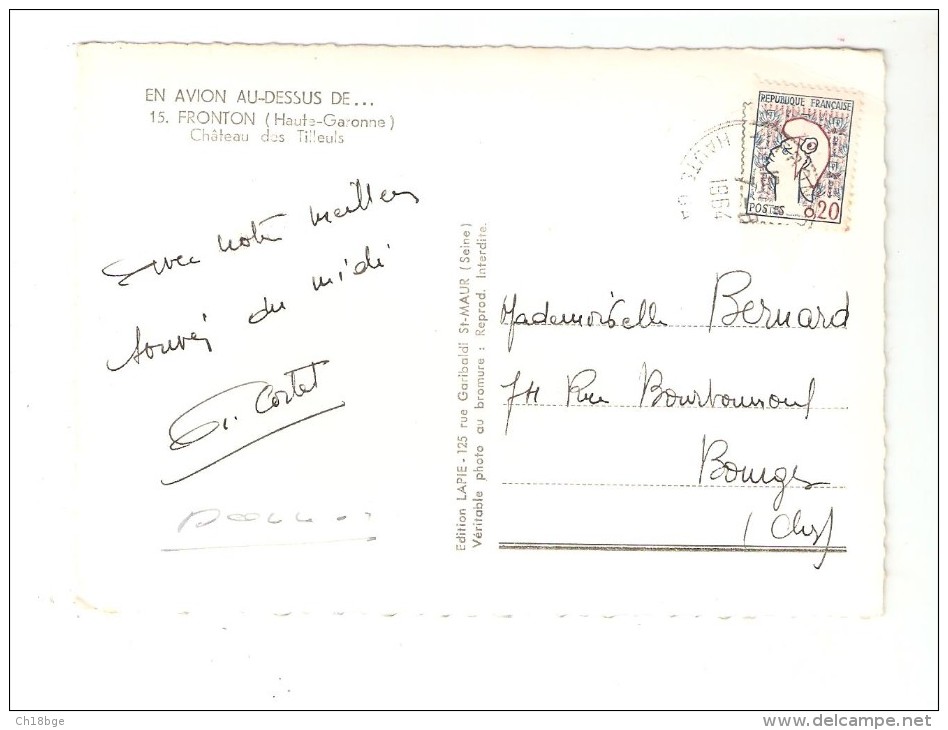 EN AVION AU-DESSUS DE...
15. FRONTON (Haute-Garonne)
Château des Tilleuls
REPUBLIQUE FRANÇAISE
POSTES 0,20
HAUTE
1964
avec notre meilleur
souvenir du midi
G. Cortet
Edition LAPIE - 125 rue Garibaldi St-MAUR (Seine)
Véritable photo au bromure : Reprod. Interdite.
Mademoiselle Bernard
74 Rue Bourbonnoux
Bourges
(Cher)
Ch18bge
www.delcampe.net